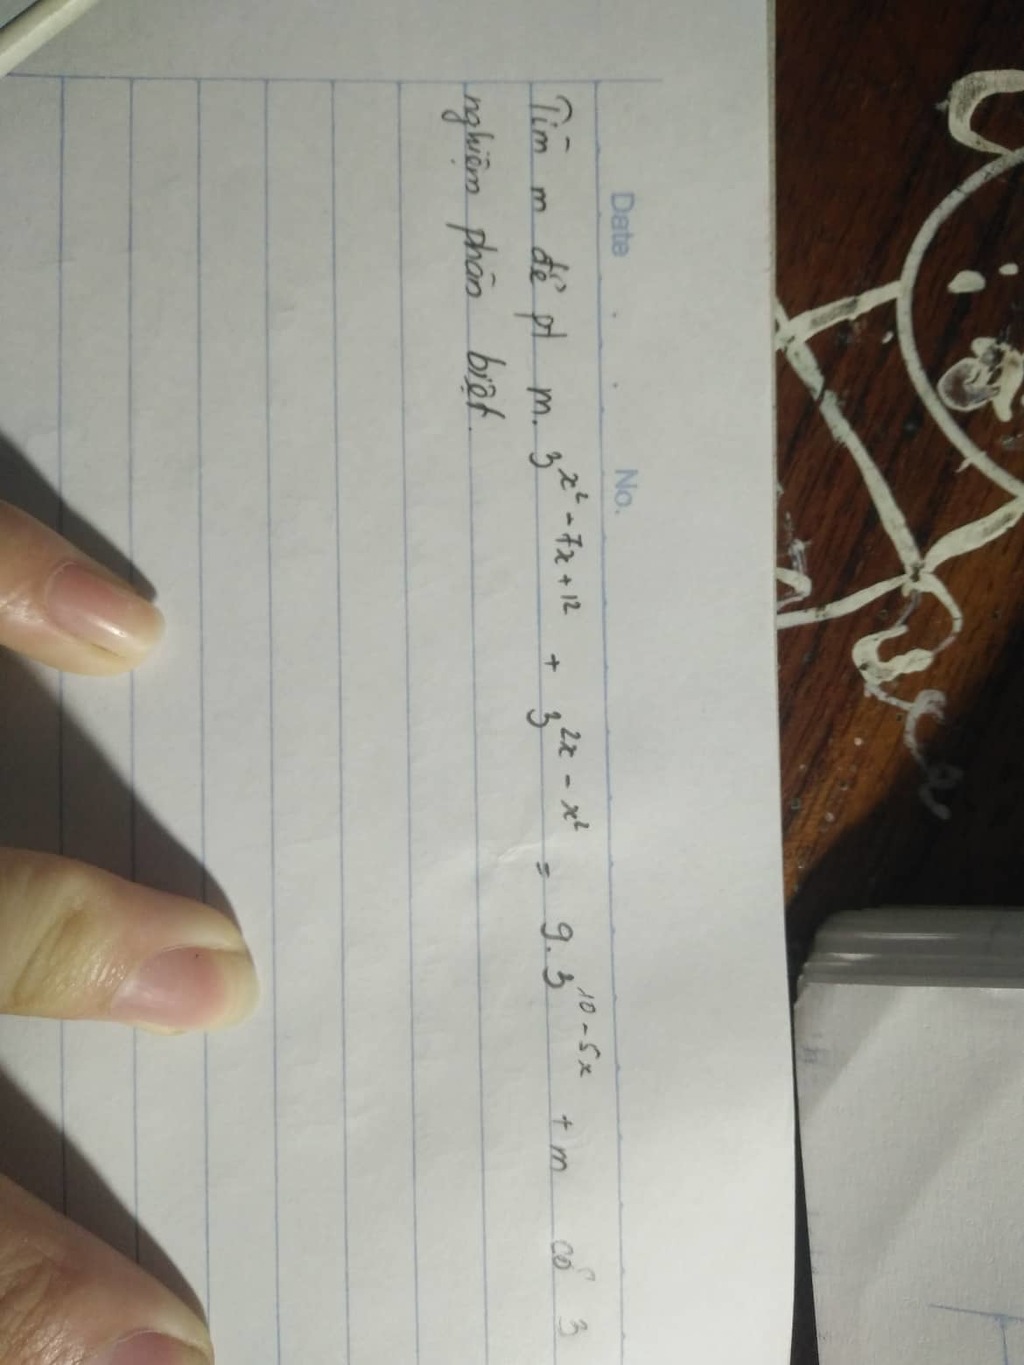 Date . . No.
Tìm m để pt m. 3^{x² - 7x + 12} + 3^{2x - x²} = 9. 3^{10 - 5x} + m có 3
nghiệm phân biệt.